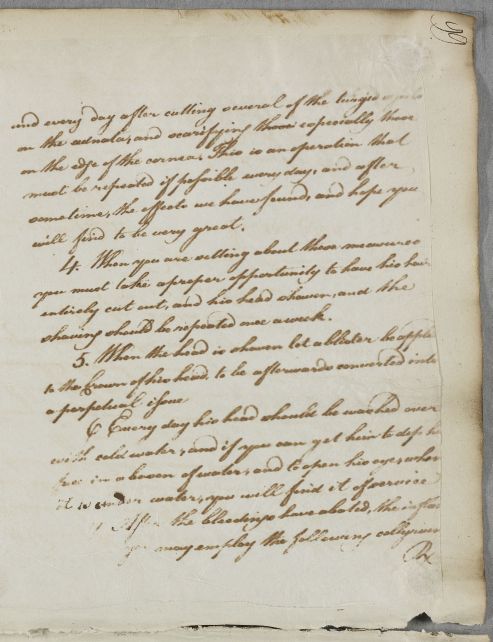 and every day after cutting several of the turgid
on the adnata, and scarifying those especially those
on the edge of the cornea. This is an operation that
must be repeated if possible every day, and after
sometime, the effects we have found, and hope you
will find to be very great.
4. When you are setting about these measures
you must take a proper opportunity to have his hair
entirely cut out, and his head shaven, and the
shaving should be repeated once a week.
5. When the head is shaven let a blister be applied
to the crown of his head, to be afterwards converted into
a perpetual issue
6 Every day his head should be washed over
with cold water; and if you can get him to dip his
face in a bason of water, and to open his eyes, when
it is under water, you will find it of service
After the bleedings have abated, the inflam
you may employ the following collyrium
℞